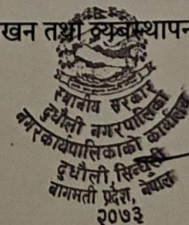 खन तथा व्यवस्थापन
स्थानीय सरकार
दुधौली नगरपालिका
नगरकार्यपालिकाको कार्यालय
दुधौली, सिन्धुली
बागमती प्रदेश, नेपाल
२०७३